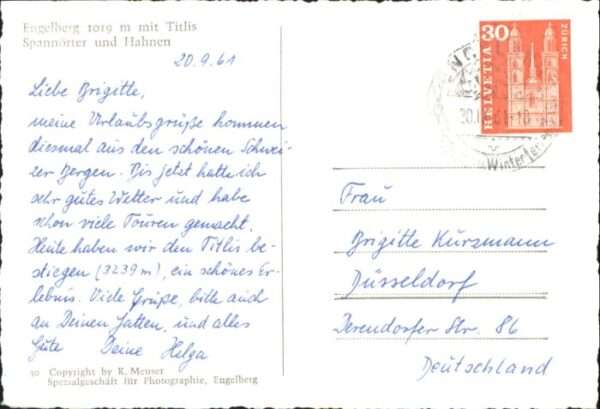 Engelberg 1019 m mit Titlis
Spannörter und Hahnen
20.9.61
Liebe Brigitte,
meine Urlaubsgrüße kommen
diesmal aus den schönen Schwei-
zer Bergen. Bis jetzt hatte ich
sehr gutes Wetter und habe
schon viele Touren gemacht.
Heute haben wir den Titlis be-
stiegen (3239 m), ein schönes Er-
lebnis. Viele Grüße, bitte auch
an Deinen Gatten, und alles
Gute Deine Helga
30 Copyright by K. Meuser
Spezialgeschäft für Photographie, Engelberg
30
HELVETIA
ZÜRICH
Frau
Brigitte Kürzmann
Düsseldorf
Derendorfer Str. 86
Deutschland